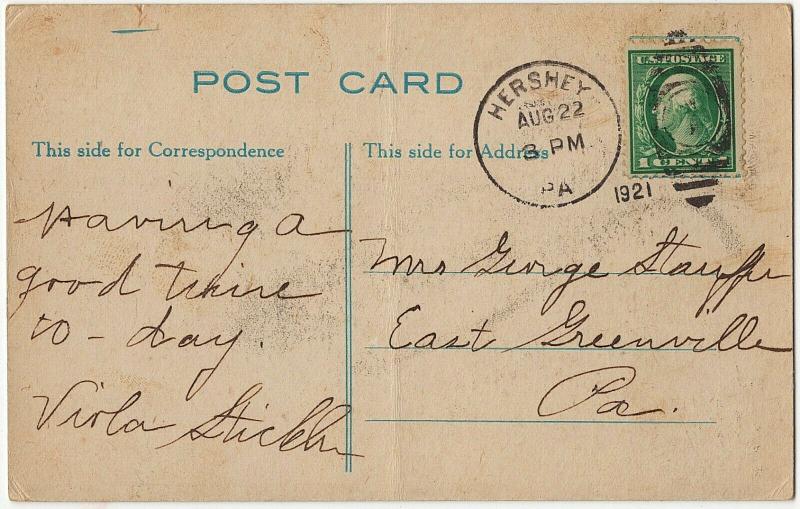 POST CARD
HERSHEY
AUG 22
3 PM
PA
1921
U.S. POSTAGE
1 CENT
This side for Correspondence
This side for Address
Having a
good time
to-day.
Viola
Mrs George Stauffer
East Greenville
Pa.